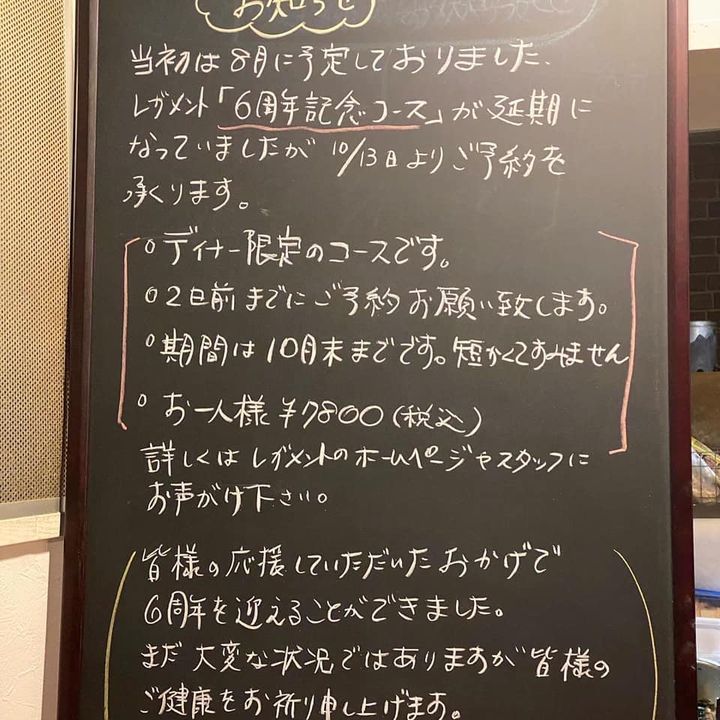 お知らせ
当初は8月に予定しておりました、
レガメント「6周年記念コース」が延期に
なっていましたが 10/13日よりご予約を
承ります。
○ディナー限定のコースです。
○2日前までにご予約お願い致します。
○期間は10月末までです。短かくてすみません
○お一人様¥7800(税込)
詳しくはレガメントのホームページやスタッフに
お声がけ下さい。
皆様の応援していただいたおかげで
6周年を迎えることができました。
まだ大変な状況ではありますが皆様の
ご健康をお祈り申し上げます。